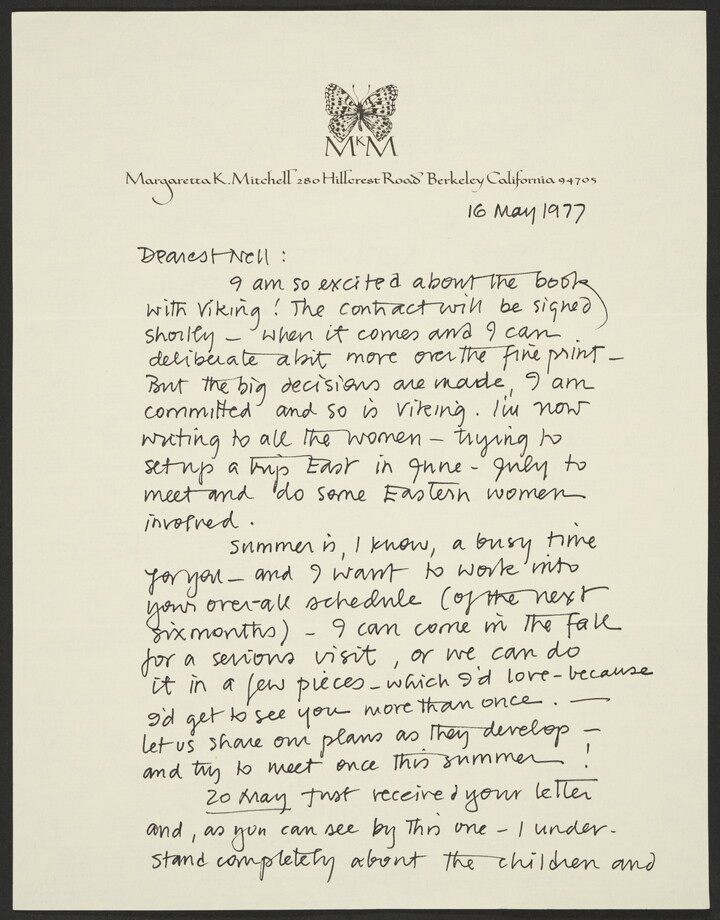 MKM
Margaretta K. Mitchell 280 Hillcrest Road Berkeley California 94705
16 May 1977
Dearest Nell :
I am so excited about the book
with Viking ! The contract will be signed
shortly – when it comes and I can
deliberate a bit more over the fine print –
But the big decisions are made, I am
committed and so is Viking. I'm now
writing to all the women – trying to
set up a trip East in June - July to
meet and do some Eastern women
involved .
Summer is, I know, a busy time
for you – and I want to work into
your over-all schedule (of the next
six months) – I can come in the fall
for a serious visit , or we can do
it in a few pieces – which I'd love – because
I'd get to see you more than once . —
let us share our plans as they develop –
and try to meet once this summer !
20 May Just received your letter
and , as you can see by this one – I under-
stand completely about the children and